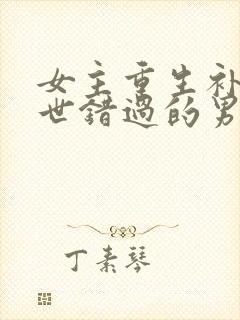 女主重生补
世错过的男
丁素琴